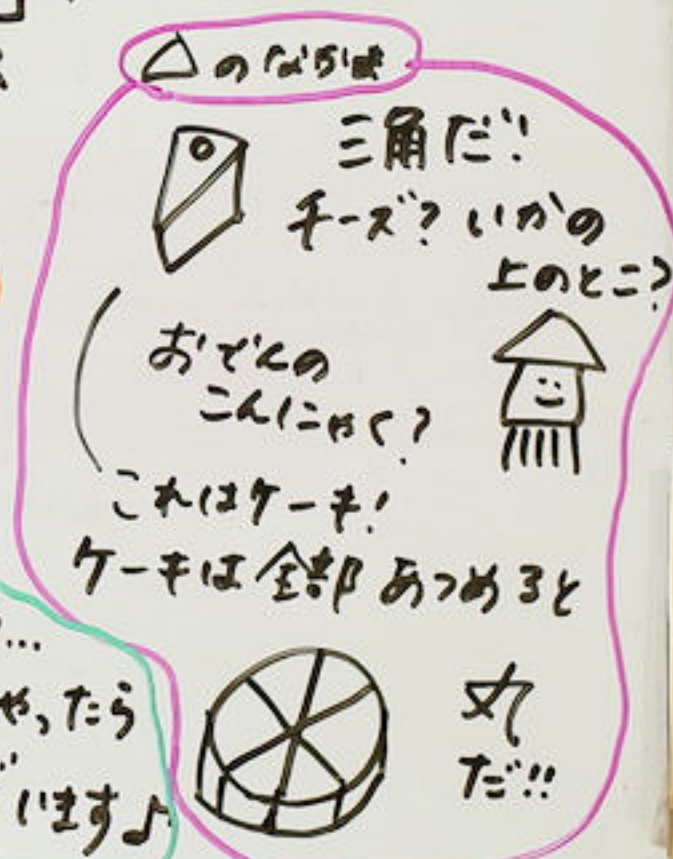 △のなかま
三角だ!
チーズ?いかの
上のとこ?
おでんの
こんにゃく?
これはケーキ!
ケーキは全部あつめると
丸
だ!!
…
やったら
います♪